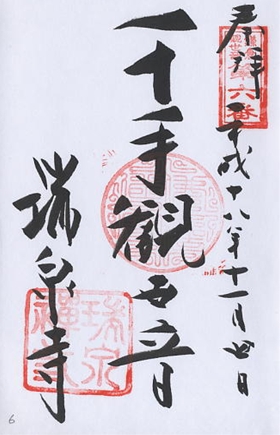 奉拝 平成十八年十一月四日
六番
千手觀世音
瑞泉寺
6